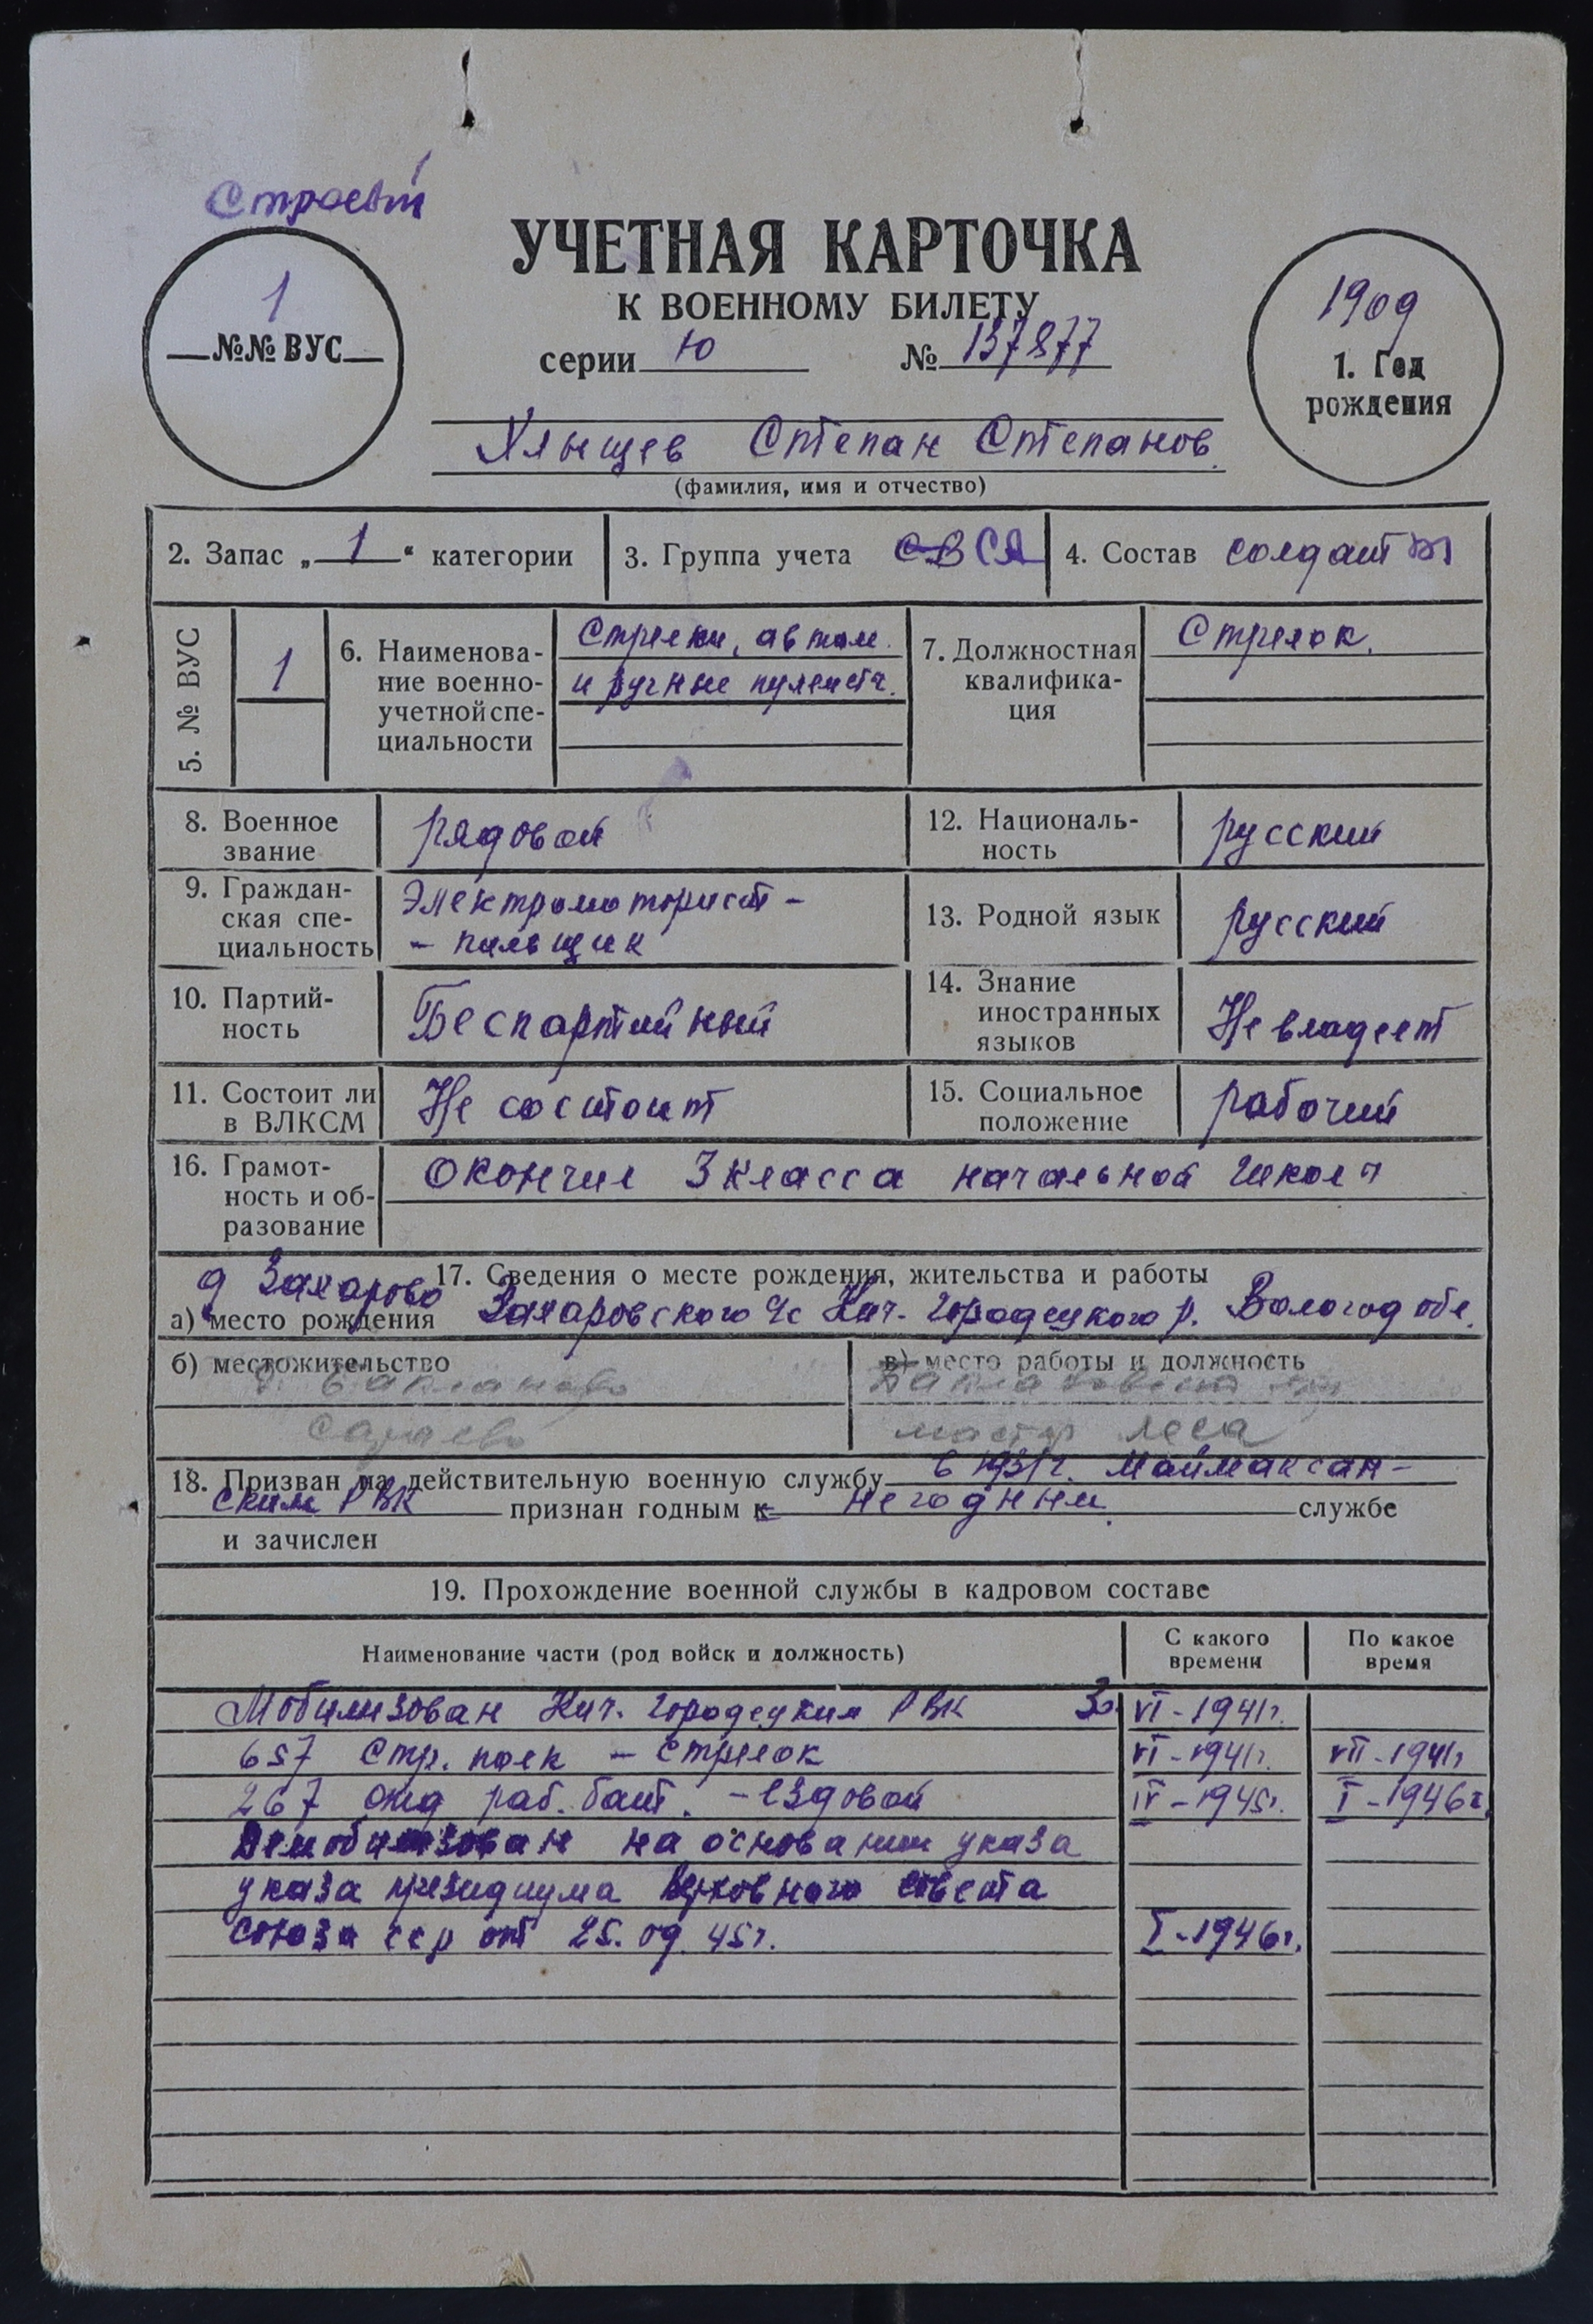 Строевой
1
№№ ВУС
УЧЕТНАЯ КАРТОЧКА
К ВОЕННОМУ БИЛЕТУ
серии Ю № 137877
1909
1. Год
рождения
Хлыщев Степан Степанов.
(фамилия, имя и отчество)
2. Запас „ 1 “ категории
3. Группа учета СВ СА
4. Состав солдат
5. № ВУС
1
6. Наименова-
ние военно-
учетной спе-
циальности
Стрелки, автом.
и ручные пулеметч.
7. Должностная
квалифика-
ция
Стрелок.
8. Военное
звание
рядовой
12. Националь-
ность
русский
9. Граждан-
ская спе-
циальность
Электромоторист -
- пильщик
13. Родной язык
русский
10. Партий-
ность
Беспартийный
14. Знание
иностранных
языков
Не владеет
11. Состоит ли
в ВЛКСМ
Не состоит
15. Социальное
положение
рабочий
16. Грамот-
ность и об-
разование
Окончил 3 класса начальной школы
17. Сведения о месте рождения, жительства и работы
д Захарово
а) место рождения Захаровского с/с Кич. Городецкого р. Вологод обл.
б) местожительство
в) место работы и должность
мастер леса
18. Призван на действительную военную службу в 1931г. Маймаксан-
ским РВК признан годным к негодным. службе
и зачислен
19. Прохождение военной службы в кадровом составе
Наименование части (род войск и должность)
С какого
времени
По какое
время
Мобилизован Кич. Городецким РВК 30 VI - 1941г.
657 Стр. полк - стрелок VI - 1941г. VII - 1941г
267 отд раб. бат. - ездовой IV - 1945г. I - 1946г.
Демобилизован на основании указа
указа президиума Верховного совета
союза сср от 25.09.45г. I - 1946г.